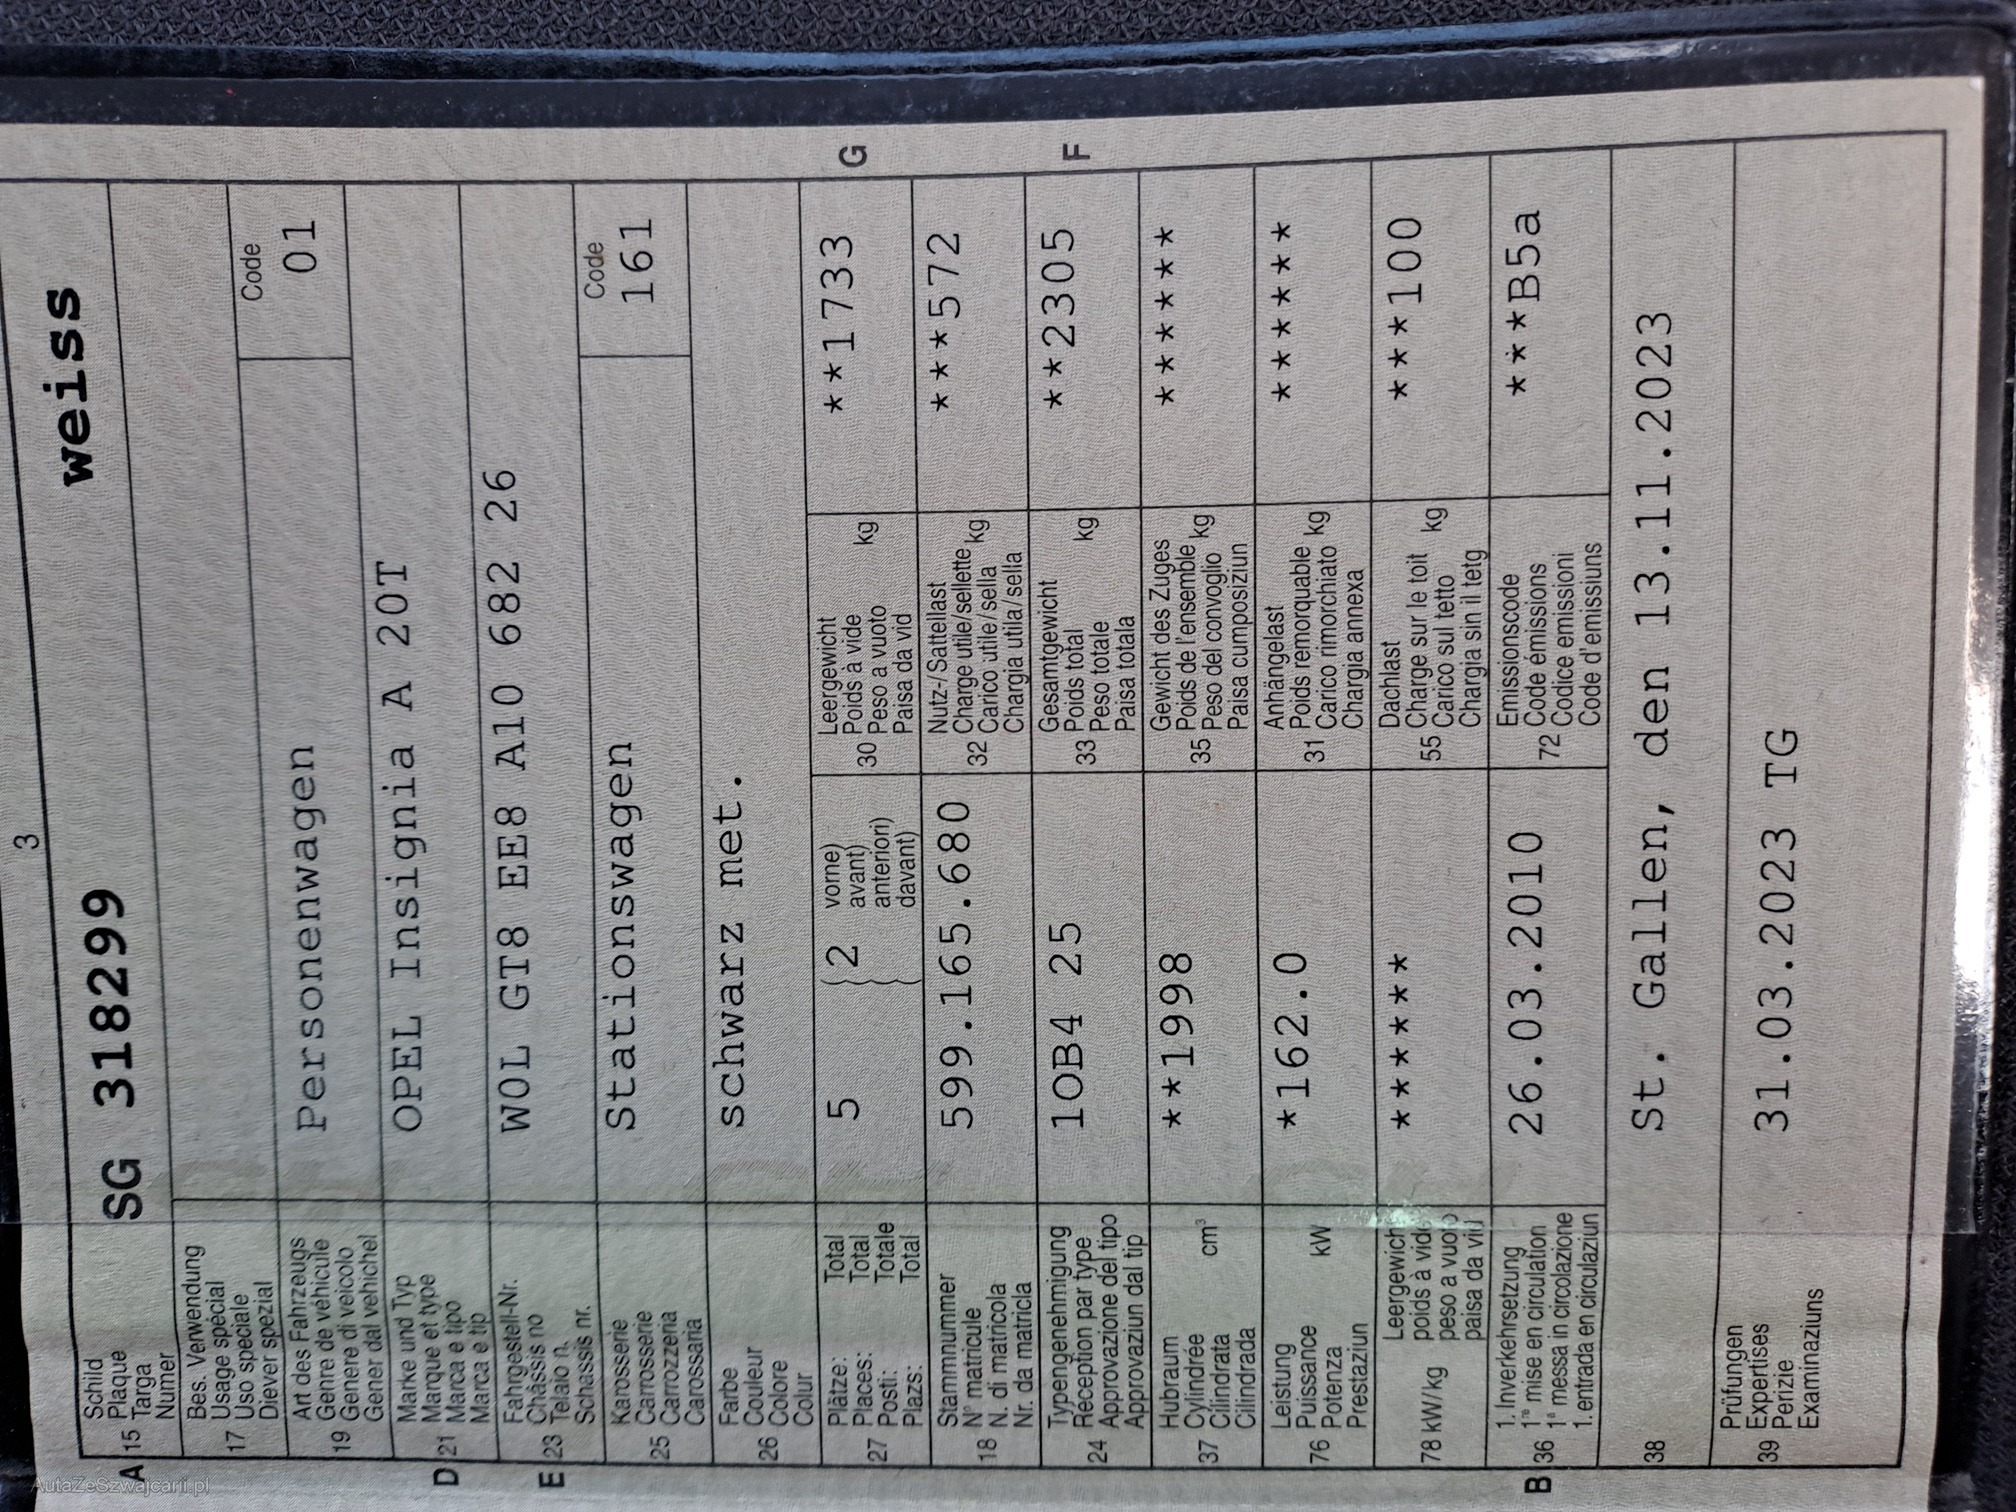 3
A 15 Schild
Plaque
Targa
Numer
SG 318299 weiss
17 Bes. Verwendung
Usage spécial
Uso speciale
Diever spezial
19 Art des Fahrzeugs
Genre de véhicule
Genere di veicolo
Gener dal vehichel
Personenwagen
Code
01
D 21 Marke und Typ
Marque et type
Marca e tipo
Marca e tip
OPEL Insignia A 20T
E 23 Fahrgestell-Nr.
Châssis no
Telaio n.
Schassis nr.
WOL GT8 EE8 A10 682 26
25 Karosserie
Carrosserie
Carrozzeria
Carossaria
Stationswagen
Code
161
26 Farbe
Couleur
Colore
Colur
schwarz met.
27 Plätze: Total
Places: Total
Posti: Totale
Plazs: Total
5 2 vorne)
avant)
anteriori)
davant)
30 Leergewicht
Poids à vide
Peso a vuoto kg
Paisa da vid
**1733 G
18 Stammnummer
N° matricule
N. di matricola
Nr. da matricla
599.165.680
32 Nutz-/Sattellast
Charge utile/sellette
Carico utile/sella kg
Chargia utila/sella
***572
24 Typengenehmigung
Réception par type
Approvazione del tipo
Approvaziun dal tip
1OB4 25
33 Gesamtgewicht
Poids total
Peso totale kg
Paisa totala
**2305 F
37 Hubraum
Cylindrée
Cilindrata cm³
Cilindrada
**1998
35 Gewicht des Zuges
Poids de l'ensemble
Peso del convoglio kg
Paisa cumposiziun
******
76 Leistung
Puissance
Potenza kW
Prestaziun
*162.0
31 Anhängelast
Poids remorquable
Carico rimorchiato kg
Chargia annexa
******
78 kW/kg Leergewicht
poids à vide
peso a vuoto
paisa da vid
******
55 Dachlast
Charge sur le toit
Carico sul tetto kg
Chargia sin il tetg
***100
B 36 1. Inverkehrsetzung
1re mise en circulation
1a messa in circolazione
1. entrada en circulaziun
26.03.2010
72 Emissionscode
Code émissions
Codice emissioni
Code d'emissiuns
***B5a
38 St. Gallen, den 13.11.2023
39 Prüfungen
Expertises
Perizie
Examinaziuns
31.03.2023 TG
AutaZeSzwajcarii.pl